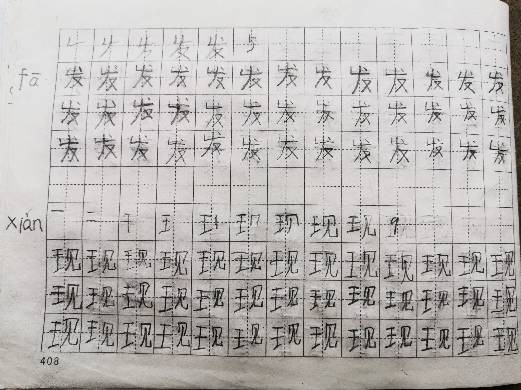 发 5
fā 发 发 发 发 发 发 发 发 发 发 发 发 发
发 发 发 发 发 发 发 发 发 发 发 发 发
发 发 发 发 发 发 发 发 发 发 发 发 发
xiàn 一 二 干 王 现 9
现 现 现 现 现 现 现 现 现 现 现 现 现
现 现 现 现 现 现 现 现 现 现 现 现 现
现 现 现 现 现 现 现 现 现 现 现 现 现
408